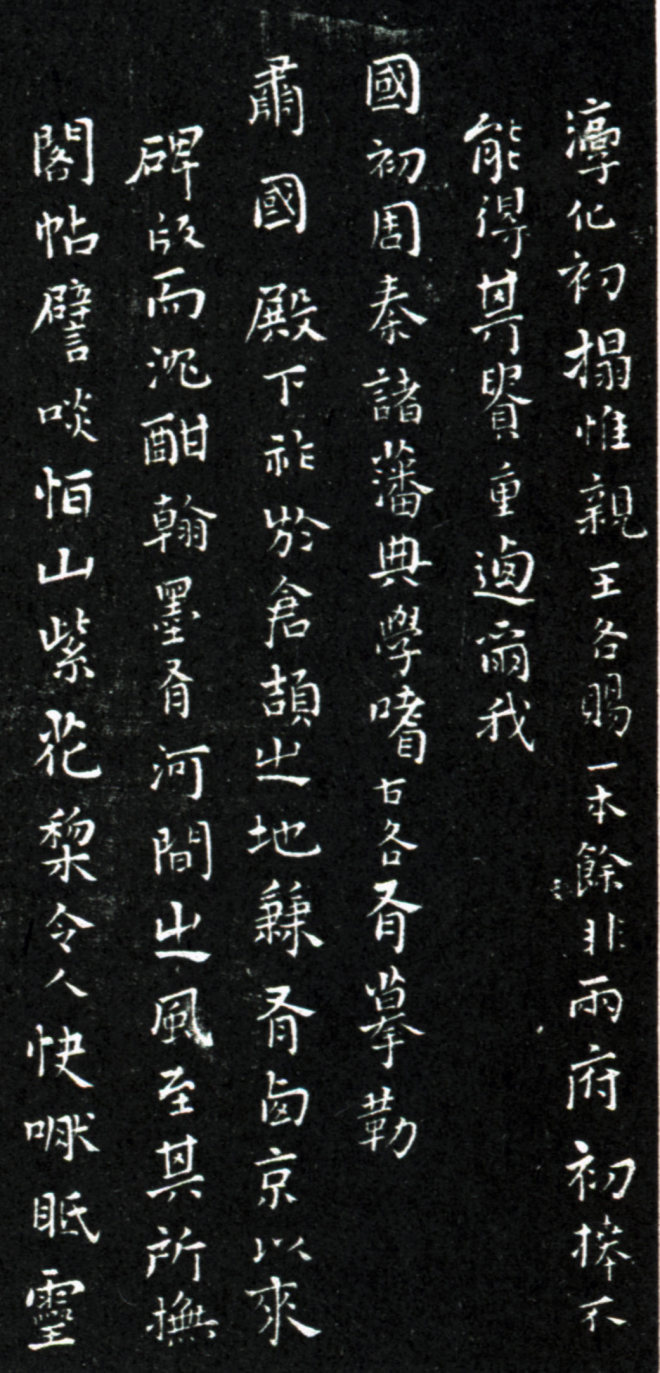 淳化初搨惟親王各賜一本餘非兩府初拜不
能得其貴重迺爾我
國初周秦諸藩典學嗜古各有摹勒
肅國殿下祚於倉頡之地兼有鹵京以來
碑版而沈酣翰墨有河間之風至其所撫
閣帖譬啖恒山紫花棃令人快眂靈